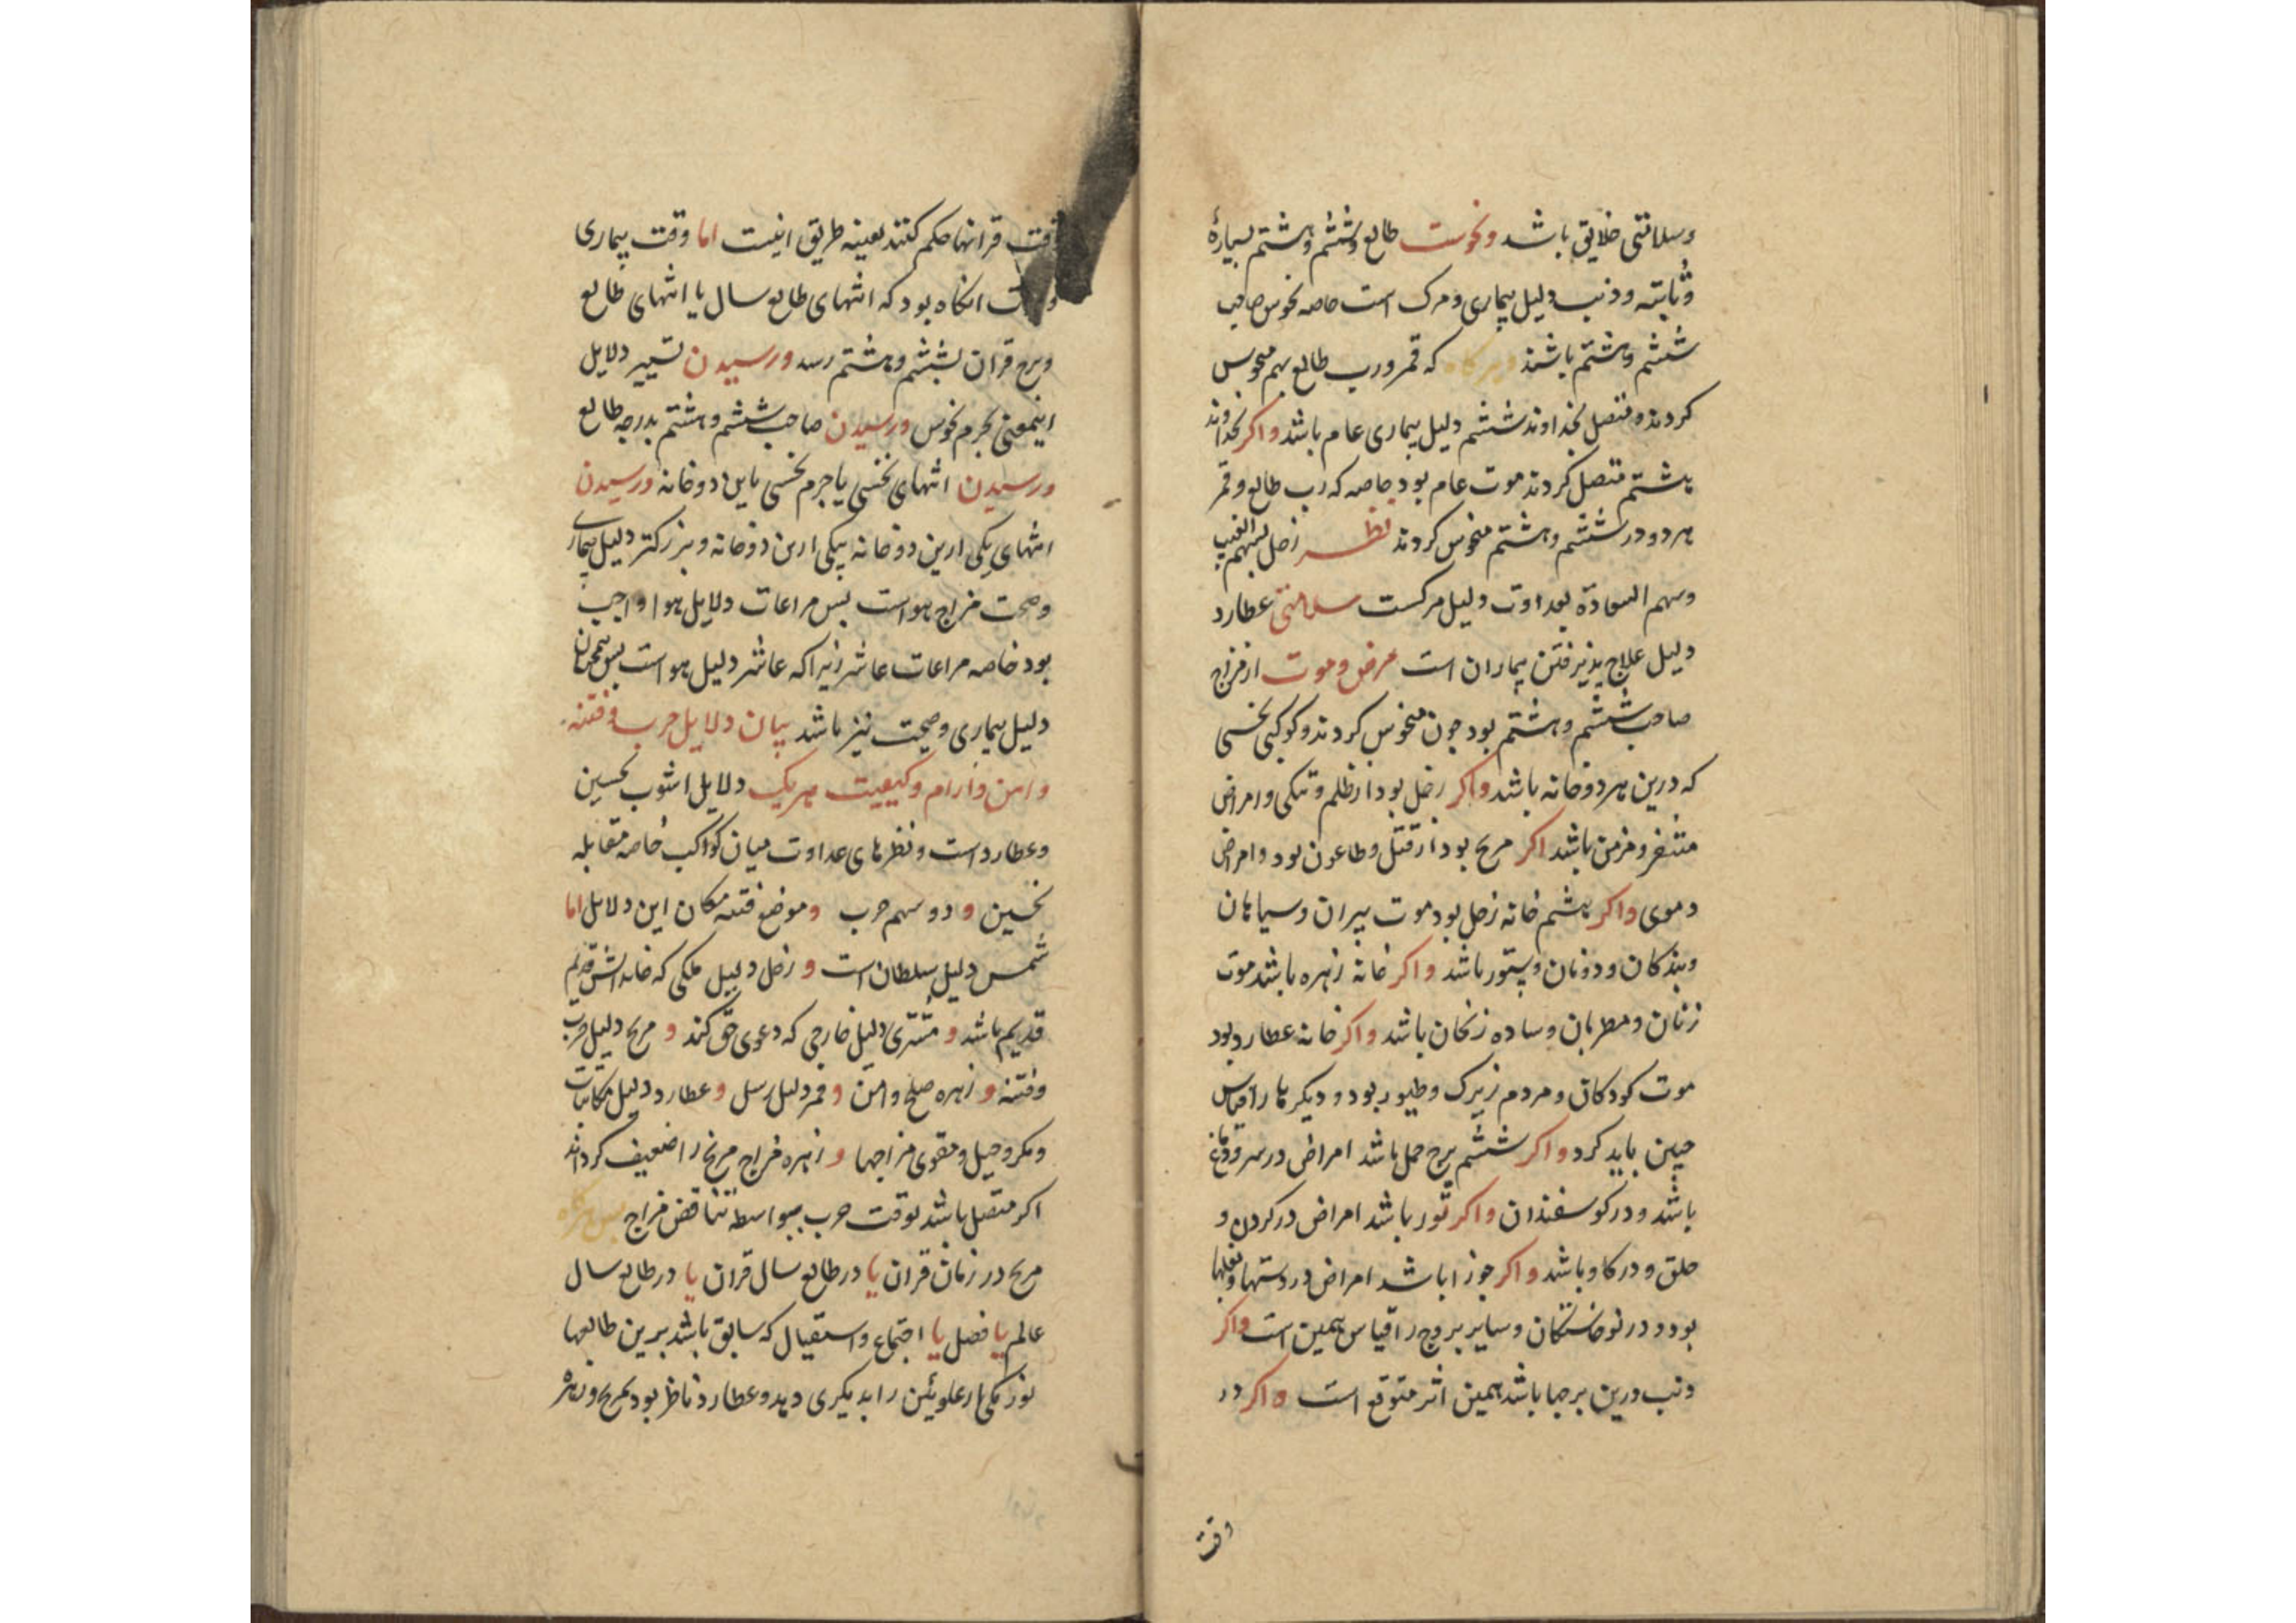 وسلامتی خلایق باشد ونحوست طالع وششم وهشتم بسیارهٔ
وثابته وذنب دلیل بیماری ومرک است خاصه نحوس صاحب
ششم وهشتم باشند وهرکاه که قمر ورب طالع بهم منحوس
کردند ومتصل بخداوند ششم دلیل بیماری عام باشد واکر بخداوند
هشتم متصل کردند موت عام بود خاصه که رب طالع وقمر
هردو در ششم وهشتم منحوس کردند نظر زحل بسهم الغیب
وسهم السعادة بعداوت دلیل مرکست سلامتی عطارد
دلیل علاج پذیرفتن بیماران است مرض وموت از مزاج
صاحب ششم وهشتم بود چون منحوس کردند وکوکبی نحسی
که درین هردوخانه باشد واکر زحل بود از ظلم وتنکی وامراض
ومزمن باشد اکر مریخ بود از قتل وطاعون بود وامراض
دموی واکر هشتم خانه زحل بود موت پیران وسیاهان
وبندکان ودونان وستور باشد واکر خانه زهره باشد موت
زنان ومطربان وساده زنخان باشد واکر خانه عطارد بود
موت کودکان ومردم زیرک وطیور بود ودیکرها را قیاس
چنین باید کرد واکر ششم برج حمل باشد امراض در سر ودماغ
باشد ودر کوسفندان واکر ثور باشد امراض در کردن و
حلق ودر کاو باشد واکر جوزا باشد امراض در دستها وبغلها
بود ودر نوخاستکان وسایر بروج را قیاس همین است واکر
ذنب درین برجها باشد همین اثر متوقع است واکر در
وقت
وقت قرانها حکم کنند بعینه طریق اینست اما وقت بیماری
انکاه بود که انتهای طالع سال یا انتهای طالع
وبرج قران بششم وهشتم رسد ورسیدن تسییر دلایل
اینمعنی بجرم نحوس ورسیدن صاحب ششم وهشتم بدرجه طالع
ورسیدن انتهای نحسی یا جرم نحسی باین دوخانه ورسیدن
انتهای یکی ازین دوخانه بیکی ازین دوخانه وبزرکتر دلیل بیماری
وصحت مزاج هواست پس مراعات دلایل هوا واجب
بود خاصه مراعات عاشر زیرا که عاشر دلیل هواست پس همچنان
دلیل بیماری وصحت نیز باشد بیان دلایل حرب وفتنه
وامن وآرام وکیفیت هریک دلایل اشوب نحسین
وعطارد است ونظرهای عداوت میان کواکب خاصه مقابله
نحسین و دو سهم حرب وموضع فتنه مکان این دلایل اما
شمس دلیل سلطان است و زحل دلیل ملکی که خانه اش قدیم
قدیم باشد و مشتری دلیل خارجی که دعوی حق کند و مریخ دلیل حرب
وفتنه و زهره صلح وامن و قمر دلیل رسل و عطارد دلیل مکاتبات
ومکر وحیل ومقوی مزاجها و زهره مزاج مریخ را ضعیف کرداند
اکر متصل باشد بوقت حرب بواسطه تناقض مزاج پس هرکاه
مریخ در زمان قران یا در طالع سال قران یا در طالع سال
عالم یا فصل یا اجتماع واستقبال که سابق باشد برین طالعها
نور یکی از علویین را بدیکری دهد وعطارد ناظر بود بمریخ وزهره